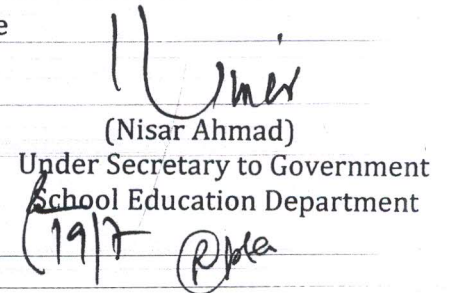 e
(Nisar Ahmad)
Under Secretary to Government
School Education Department
19/7